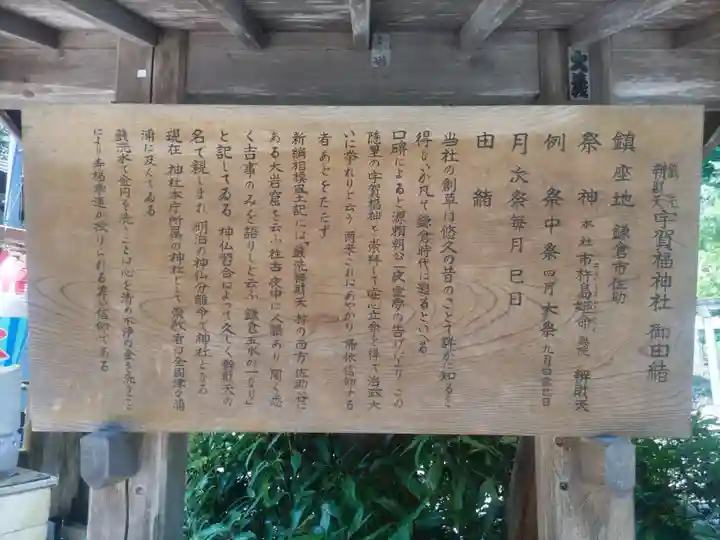 銭洗
辨財天 宇賀福神社 御由緒
鎮座地 鎌倉市佐助
祭神 水社 市杵島姫命 奥宮 辨財天
例祭 中祭 四月 大祭 九月 巳日
月次祭 毎月 巳日
由緒
当社の創草は悠久の昔のことで詳かに知ること
得ないが凡そ鎌倉時代に遡るといへる
口碑によると源頼朝公一夜霊夢の告げにより この
隠里の宇賀福神を崇拝して安心立命を得て治武大
いに挙れりと云う 爾来これにあやかり帰依信仰する
者あとをたたず
新編相模風土記には「銭洗辨財天 村の西方 佐助ヶ谷に
ある大岩窟を云ふ 往古夜中に人語あり 聞く悉
く吉事のみを語りしと云ふ 鎌倉五水の一なり」
と記してゐる 神仏習合によって久しく辨財天の
名で親しまれ 明治の神仏分離令で神社となる
現在 神社本庁所属の神社として崇敬者は全国津々浦
浦に及んでゐる
銭洗水で金円を洗ふことは心を清め不浄の金を洗ふこと
により幸福幸運が授けられる寿信仰である